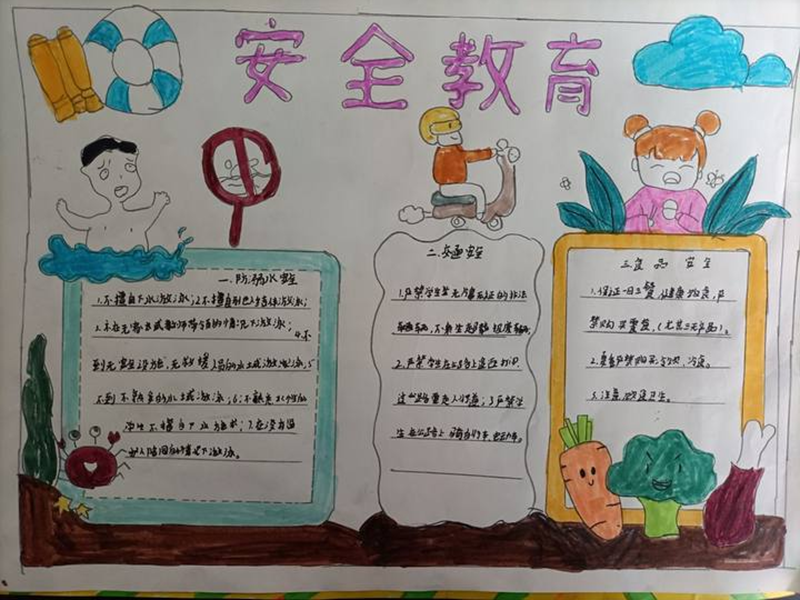 安全教育
一.防溺水安全
1.不擅自下水游泳;2不擅自与他人结伴游泳;
3.不在无家长或教师带领的情况下游泳;4.不
到无安全设施、无救援人员的水域游泳;5
不到不熟悉的水域游泳;6:不熟悉水性的
学生不擅自下水施救;7.在没有
的情况下游泳。
二.交通安全
1.严禁学生坐无牌无证的非法
车辆,不乘坐超载超速车辆;
2.严禁学生在公路上追逐打闹
过公路需走人行道;3严禁学
生在公路上骑自行车
三食品安全
1.保证一日三餐,健康饮食,严
禁购买零食,(尤其三无产品)。
2.夏季严禁购买、冷食。
3.注意饮食卫生。